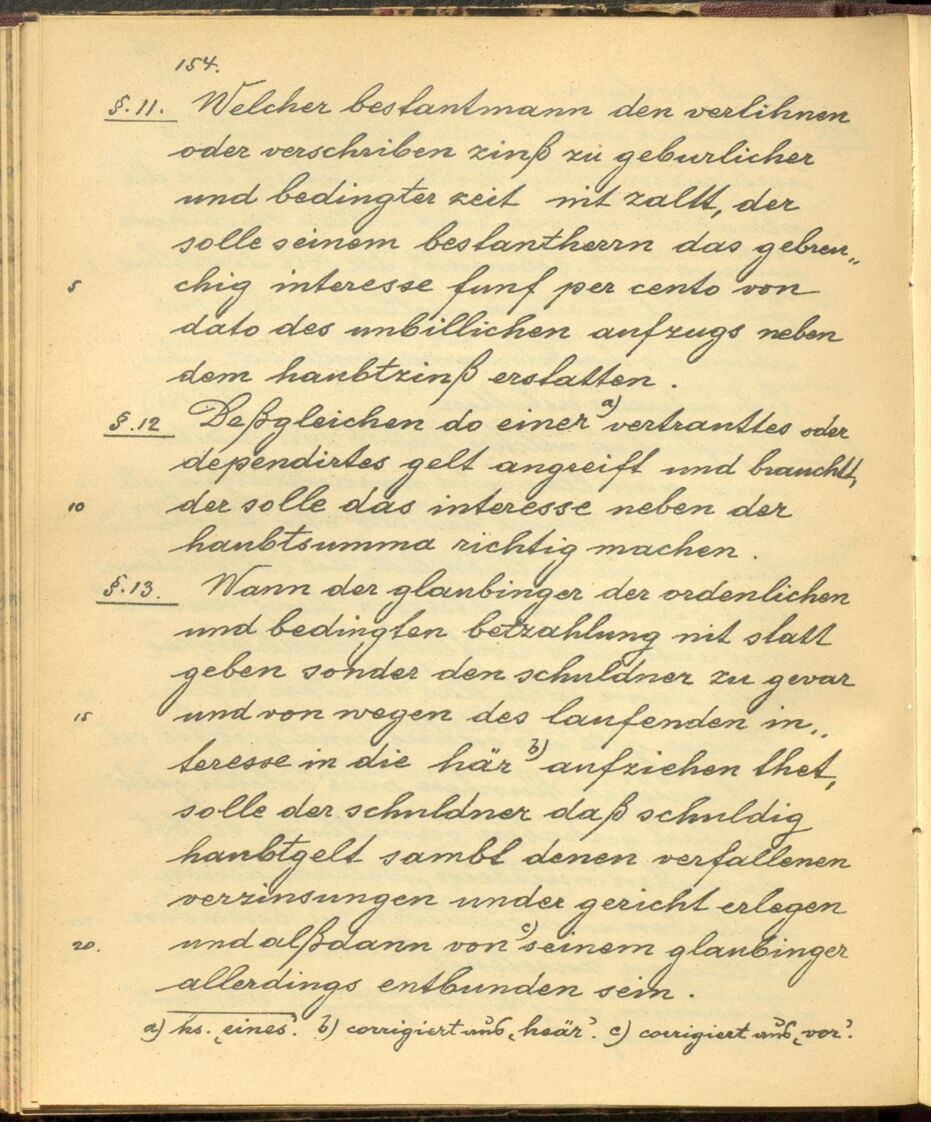 154.
§. 11. Welcher bestantmann den verlihnen
oder verschriben zinß zu geburlicher
und bedingter zeit nit zaltt, der
solle seinem bestantherrn das gebreu„
5 chig interesse funf per cento von
dato des unbillichen aufzugs neben
dem haubtzinß erstatten.
§. 12 Deßgleichen do einer a) vertrauttes oder
dependirtes gelt angreift und brauchtt,
10 der solle das interesse neben der
haubtsumma richtig machen.
§. 13. Wann der glaubinger der ordenlichen
und bedingten betzahlung nit statt
geben sonder den schuldner zu gevar
15 und von wegen des laufenden in„
teresse in die här b) aufziehen thet,
solle der schuldner daß schuldig
haubtgelt sambt denen verfallenen
verzinsungen under gericht erlegen
20. und alßdann von c) seinem glaubinger
allerdings entbunden sein.
a) hs. ‚eines‘. b) corrigiert aus ‚heär‘. c) corrigiert aus ‚vor‘.